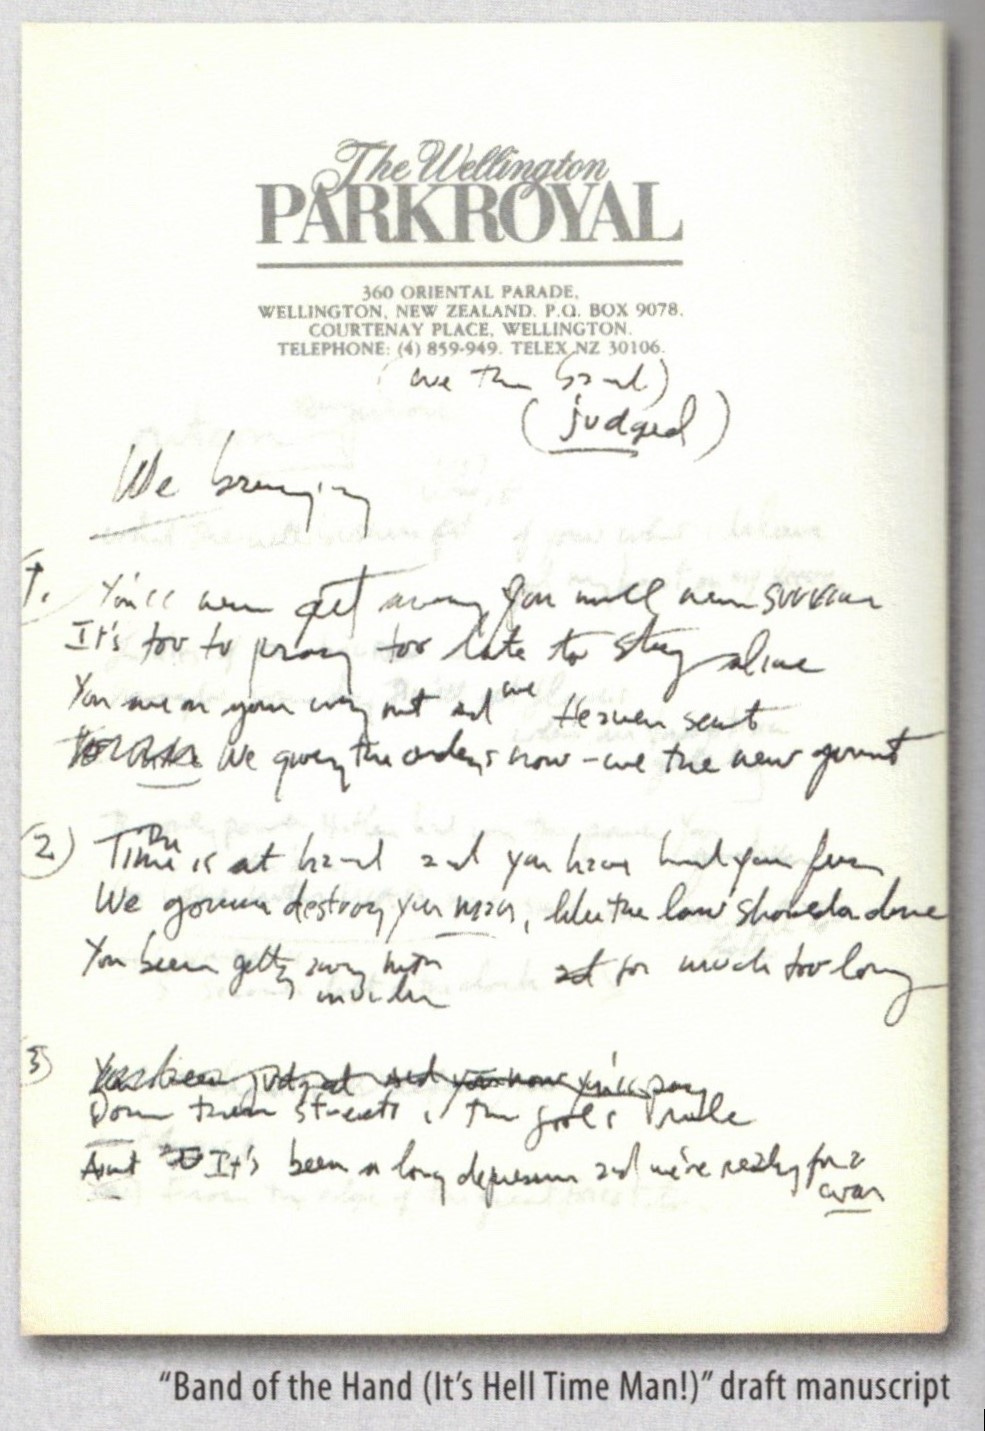 The Wellington
PARKROYAL
360 ORIENTAL PARADE,
WELLINGTON, NEW ZEALAND. P.O. BOX 9078,
COURTENAY PLACE, WELLINGTON.
TELEPHONE: (4) 859-949. TELEX NZ 30106.
(we the band)
(judged)
We bringing
1. You'll never get away, you will never survive
It's too to pray too late to stay alive
You are on your way out and we Heaven sent
We giving the orders now - we the new govmnt
(2) The Time is at hand and you have had your fun
We gonna destroy you man, like the law shoulda done
You been gettg away with murder for much too long
3) You been judged and you now you'll pay
Down these streets the fools rule
And It's been a long depression and we're ready for a
war
"Band of the Hand (It's Hell Time Man!)" draft manuscript